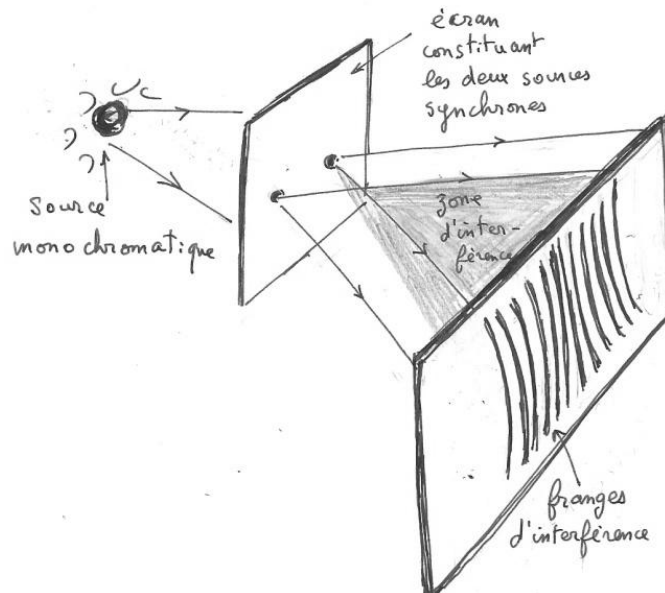 écran
constituant
les deux sources
synchrones
source
monochromatique
zone
d'inter-
férence
franges
d'interférence